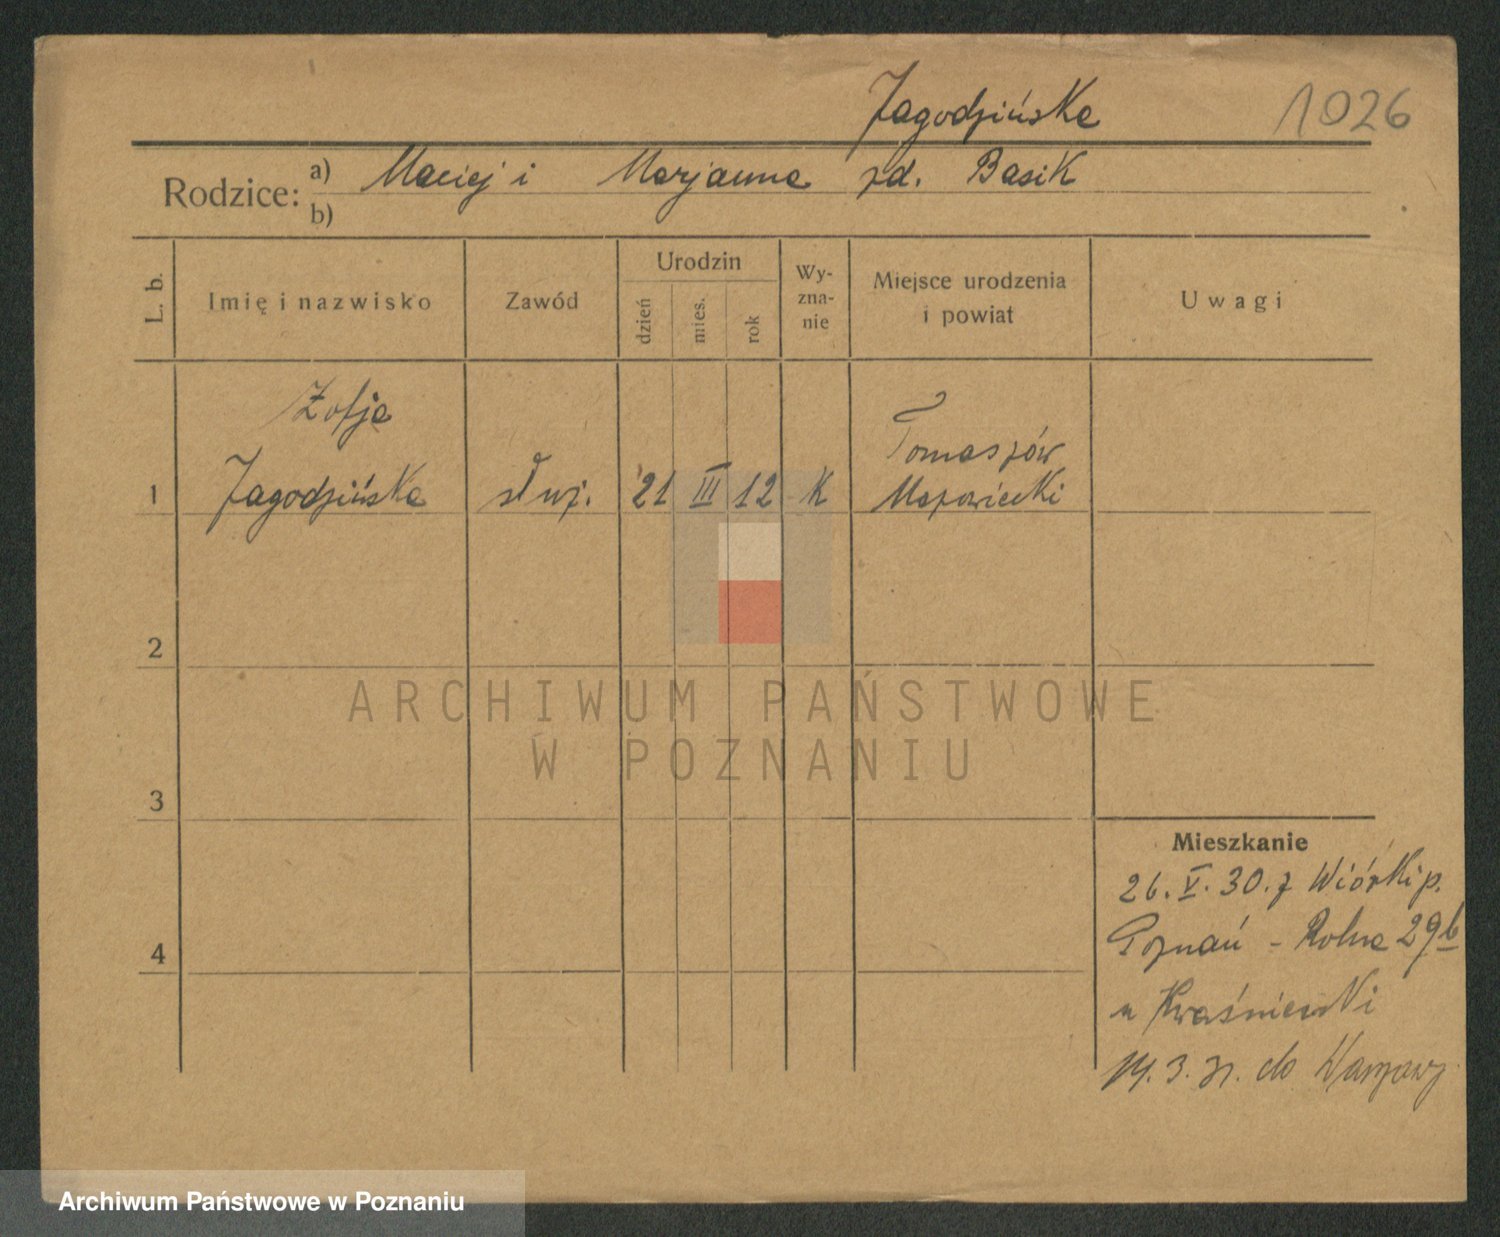 Jagodzińska 1026
Rodzice: a) Maciej i Marjanna zd. Basik
b)
L. b. Imię i nazwisko Zawód Urodzin dzień mies. rok Wy-zna-nie Miejsce urodzenia i powiat Uwagi
Zofja Tomaszów
1 Jagodzińska służ. 21 III 12 K Mazowiecki
2
ARCHIWUM PAŃSTWOWE
W POZNANIU
3
Mieszkanie
26. V. 30. z Wiórki p.
Poznań - Rolna 29b
4
u Kwaśniewski
14. 3. 31. do Warszawy
Archiwum Państwowe w Poznaniu